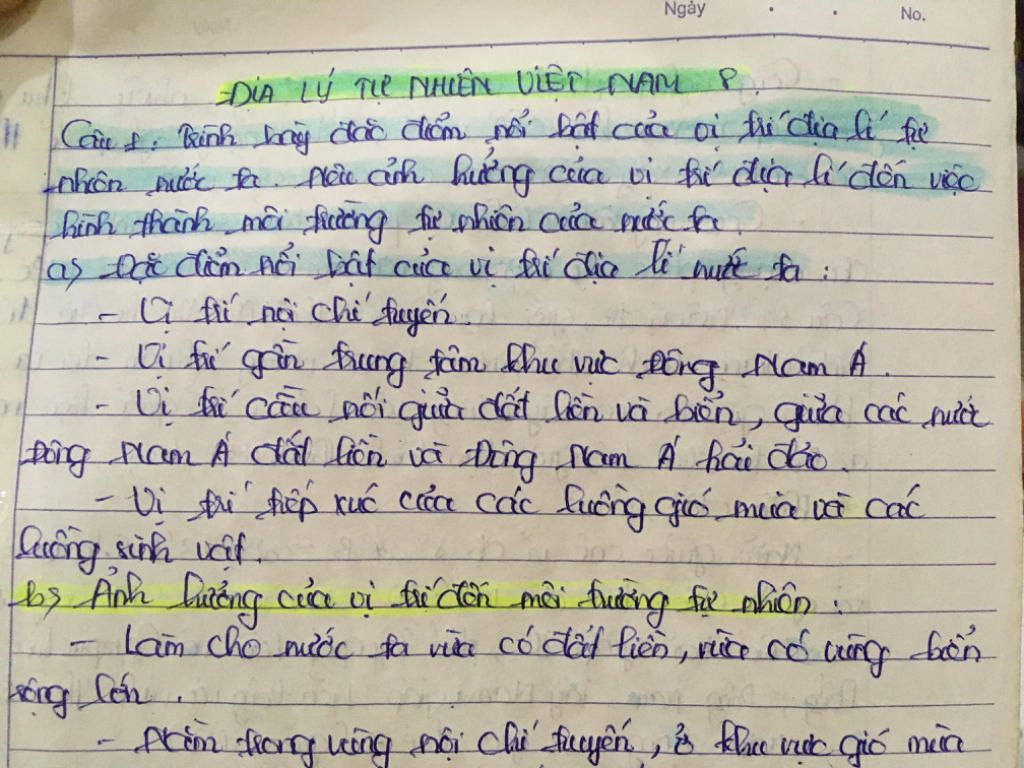 Ngày
No.
ĐỊA LÝ TỰ NHIÊN VIỆT NAM 8.
Câu 1. Trình bày đặc điểm nổi bật của vị trí địa lí tự
nhiên nước ta. Nêu ảnh hưởng của vị trí địa lí đến việc
hình thành môi trường tự nhiên của nước ta.
a) Đặc điểm nổi bật của vị trí địa lí nước ta :
- Vị trí nội chí tuyến.
- Vị trí gần trung tâm khu vực Đông Nam Á.
- Vị trí cầu nối giữa đất liền và biển, giữa các nước
Đông Nam Á đất liền và Đông Nam Á hải đảo.
- Vị trí tiếp xúc của các luồng gió mùa và các
luồng sinh vật.
b) Ảnh hưởng của vị trí đến môi trường tự nhiên :
- Làm cho nước ta vừa có đất liền, vừa có vùng biển
rộng lớn.
- Nằm trong vùng nội chí tuyến, ở khu vực gió mùa